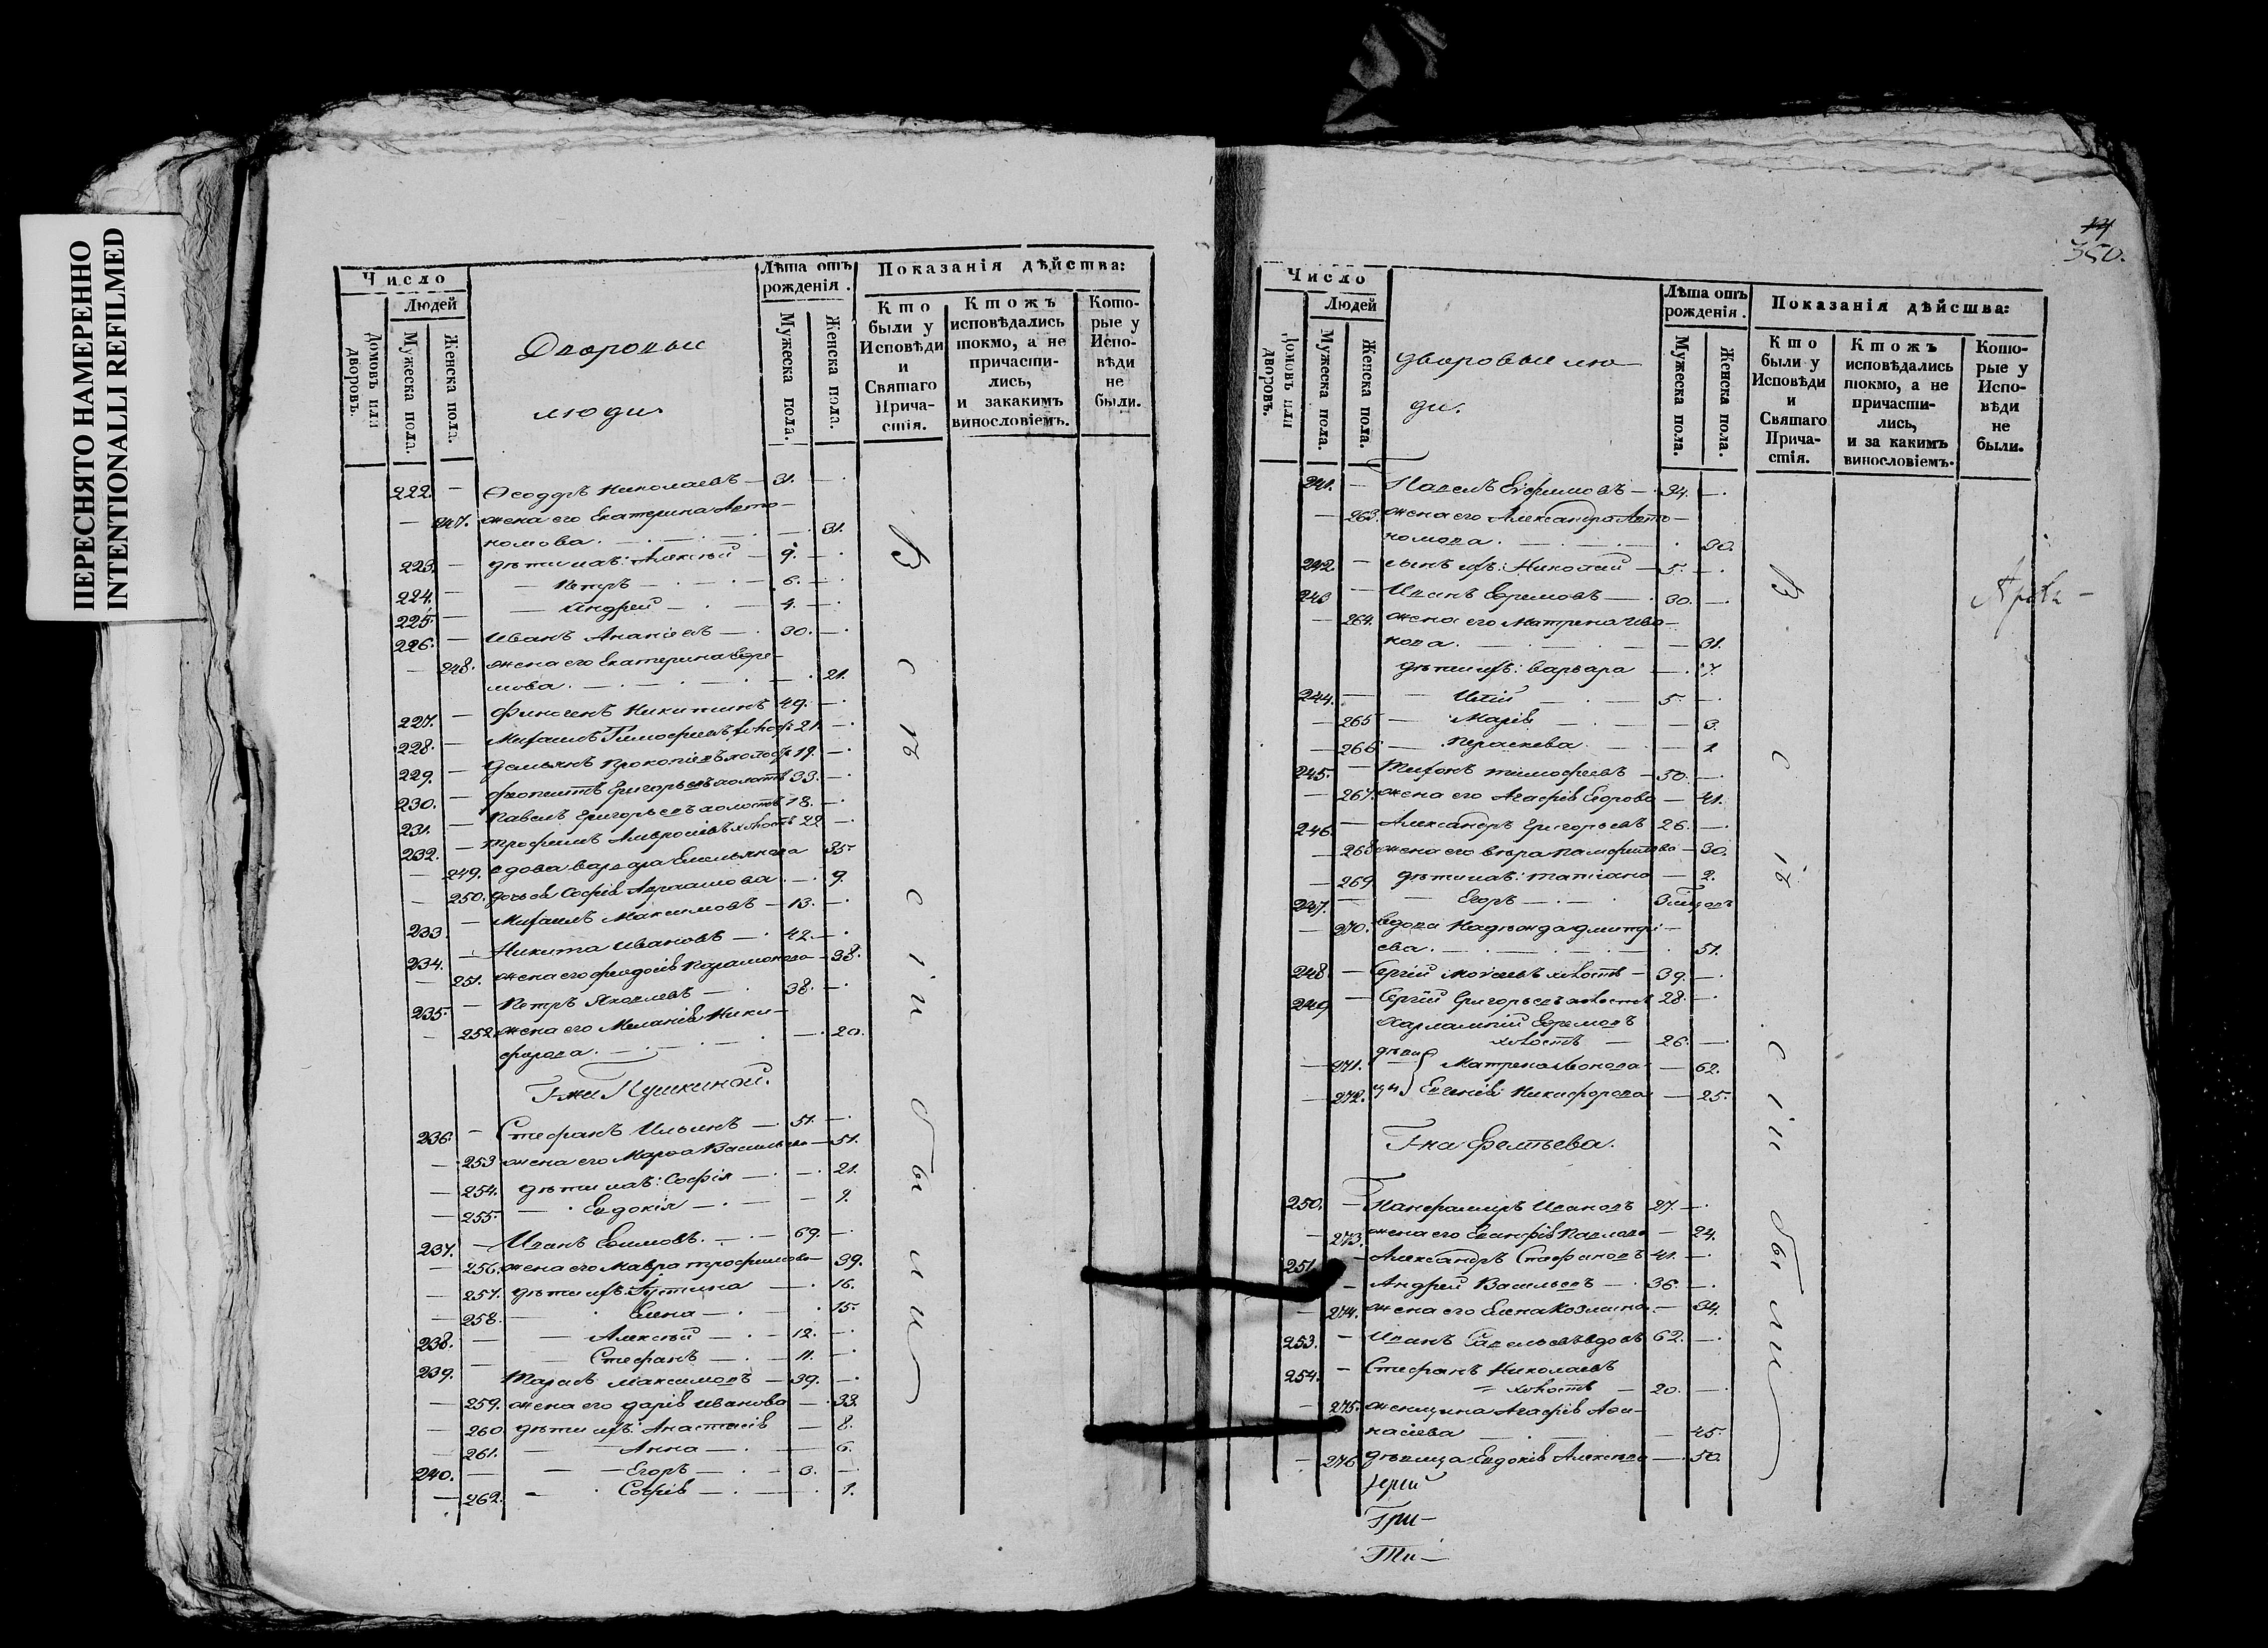 ПЕРЕСНЯТО НАМЕРЕННО
INTENTIONALLI REFILMED
Число
Людей
Домовъ или дворовъ.
Мужеска пола.
Женска пола.
Дворовые
люди
Лѣта отъ рожденія.
Мужеска пола.
Женска пола.
Показанія дѣйства:
Кто были у Исповѣди и Святаго Прича- стія.
Ктожъ исповѣдались токмо, а не причасти- лись, и закакимъ винословіемъ.
Кото- рые у Испо- вѣди не были.
222. — Ѳеодоръ Николаевъ — 31. —
— 247. жена его Екатерина Авто-
номова. — 31.
223. — дѣти ихъ: Алексѣй — 9. —
224. — Петръ — 6. —
225. — Андрей — 4. —
226. — Иванъ Ананіевъ — 30. —
— 248. жена его Екатерина Ефре-
мова. — 21.
227. — Финогенъ Никитинъ 49. —
228. — Михаилъ Тимофеевъ холост 21 —
229. — Демьянъ Прокопіевъ холост 19. —
230. — Григорьевъ холостъ 33. —
231. — Павелъ Григорьевъ холостъ 18. —
232. — Трофимъ Амвросіевъ холостъ 22 —
— 249. вдова Варвара Емельянова 35.
— 250. дочь ея Софія Авраамова — 9.
233. — Михаилъ Максимовъ — 13. —
234. — Никита Ивановъ — 42. —
— 251. жена его Феодосія Парамонова — 38.
235. — Петръ Яковлевъ — 38. —
— 252. жена его Меланія Ники-
форова. — 20.
Г-жи Пушкиной.
236. — Стефанъ Ильинъ — 51. —
— 253 жена его Марѳа Васильева — 51.
— 254. дѣти ихъ: Софія — 21.
— 255. — Евдокія — 9.
237. — Иванъ Ефимовъ. — 69. —
— 256. жена его Мавра Трофимова — 39.
— 257. дѣти ихъ: Устина — 16.
— 258. — Елена — 15.
238. — Алексѣй — 12. —
239. — Стефанъ — 11. —
Тарасъ Максимовъ — 39. —
— 259. жена его Дарія Иванова — 33.
— 260 дѣти ихъ: Анастасія — 8.
— 261. — Анна — 6.
240. — Егоръ — 3. —
— 262. — Софія — 1.
В с ѣ с і и б ы л и
350.
Число
Людей
Домовъ или дворовъ.
Мужеска пола.
Женска пола.
дворовые лю-
ди.
Лѣта отъ рожденія.
Мужеска пола.
Женска пола.
Показанія дѣйсшва:
Кто были у Исповѣди и Святаго Прича- стія.
Ктожъ исповѣдались токмо, а не причасти- лись, и за какимъ винословіемъ.
Кото- рые у Испо- вѣди не были.
241. — Павелъ Ефимовъ — 34. —
— 263. жена его Александра Авто-
номова. — 30.
242. — сынъ ихъ: Николай — 5. —
243 — Иванъ Ефремовъ — 30. —
— 264. жена его Матрена Ива-
нова. — 31.
дѣти ихъ: Варвара — 7.
244. — Илій — 5. —
— 265 — Марія — 3.
— 266 — Пераскева — 1
245. — Тихонъ Тимофеевъ — 50. —
— 267. жена его Агафія Егорова — 41.
246. — Александръ Григорьевъ 26. —
— 268 жена его Вѣра Памфилова — 30.
— 269 дѣти ихъ: Татіана — 2.
247. — Егоръ —
— 270. вдова Надежда Дмитрі-
ева. — 51.
248 — Сергій холостъ — 39. —
249 — Сергій Григорьевъ холостъ 28. —
Харлампій Ефремовъ
холостъ — 26. —
— 271. дѣви- Матрена — 62.
— 272. цы Евгенія Никифорова — 25.
Г-на
250. — Иановъ 27. —
— 273. жена его Павлова — 24.
251 — Александръ Стефановъ 41. —
— Андрей Васильевъ — 36. —
— 274. жена его Елена Козмина — 34.
253. — Иванъ Савельевъ вдовъ 62. —
254. — Стефанъ Николаевъ
холостъ — 20. —
— 275. женщина Агафія Аѳа-
насіева — 45.
— 276 дѣвица Евдокія Алексѣева — 50.
Іерей
Гри-
Ти-
В с ѣ с і и б ы л и